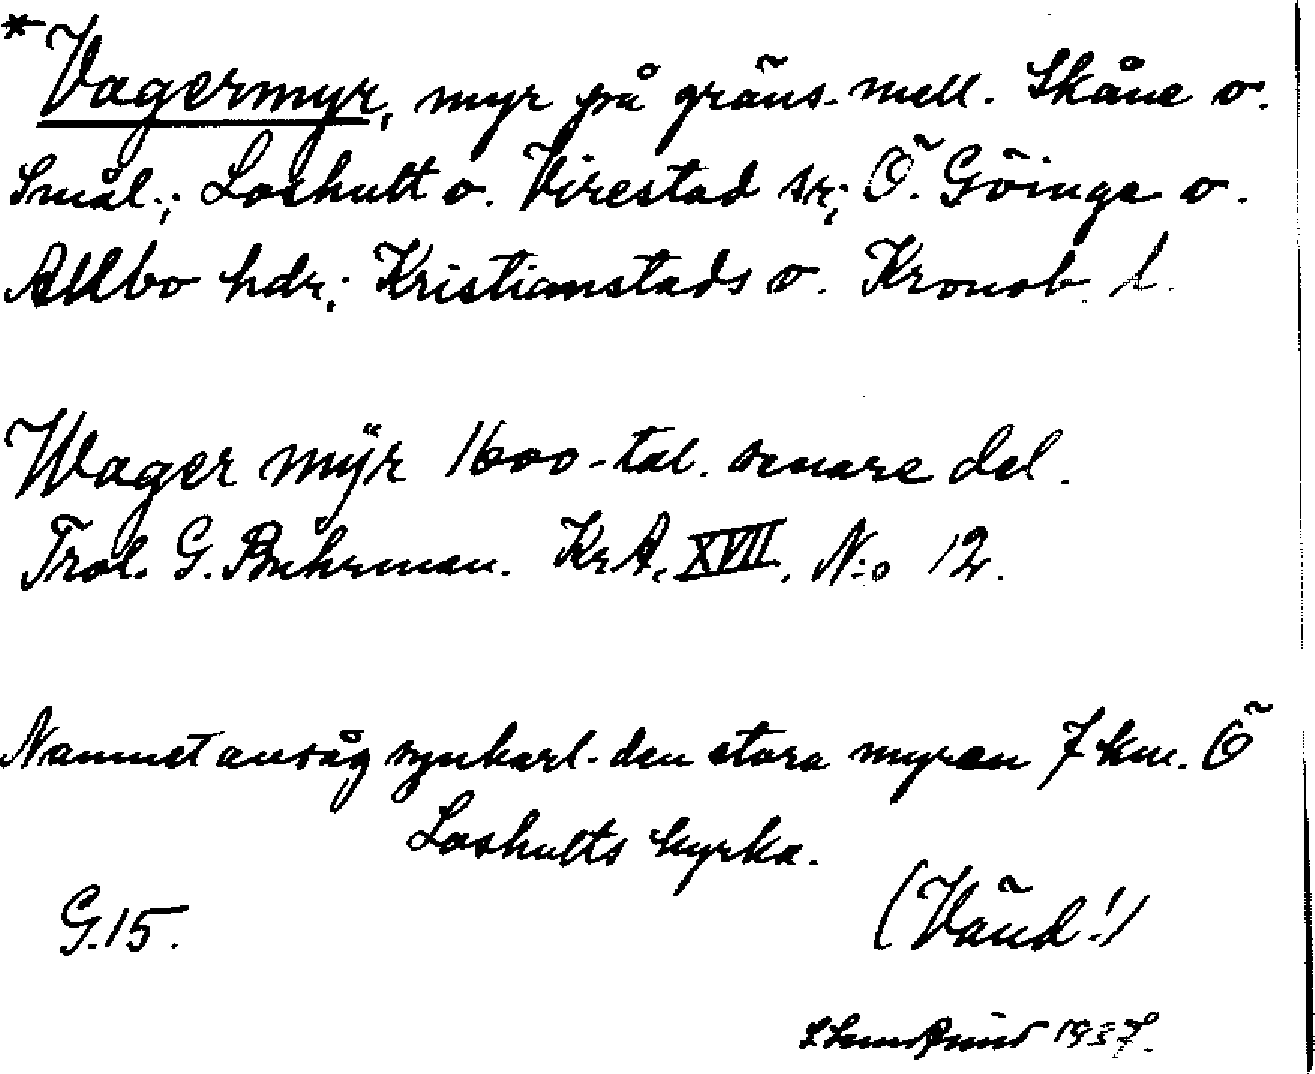 *Vagermyr, myr på gräns. mell. Skåne o.
Smål.; Loshult o. Virestad sr; Ö. Göinge o.
Allbo hdr; Kristianstads o. Kronob. l.
Wager mÿr 1600-tal. senare del.
Trol. G. Buhrman. KrA, XVII, N:o 12.
Namnet avsåg synbarl. den stora myren 7 km. Ö
Loshults kyrka.
G.15.
(Vänd!)
1937.